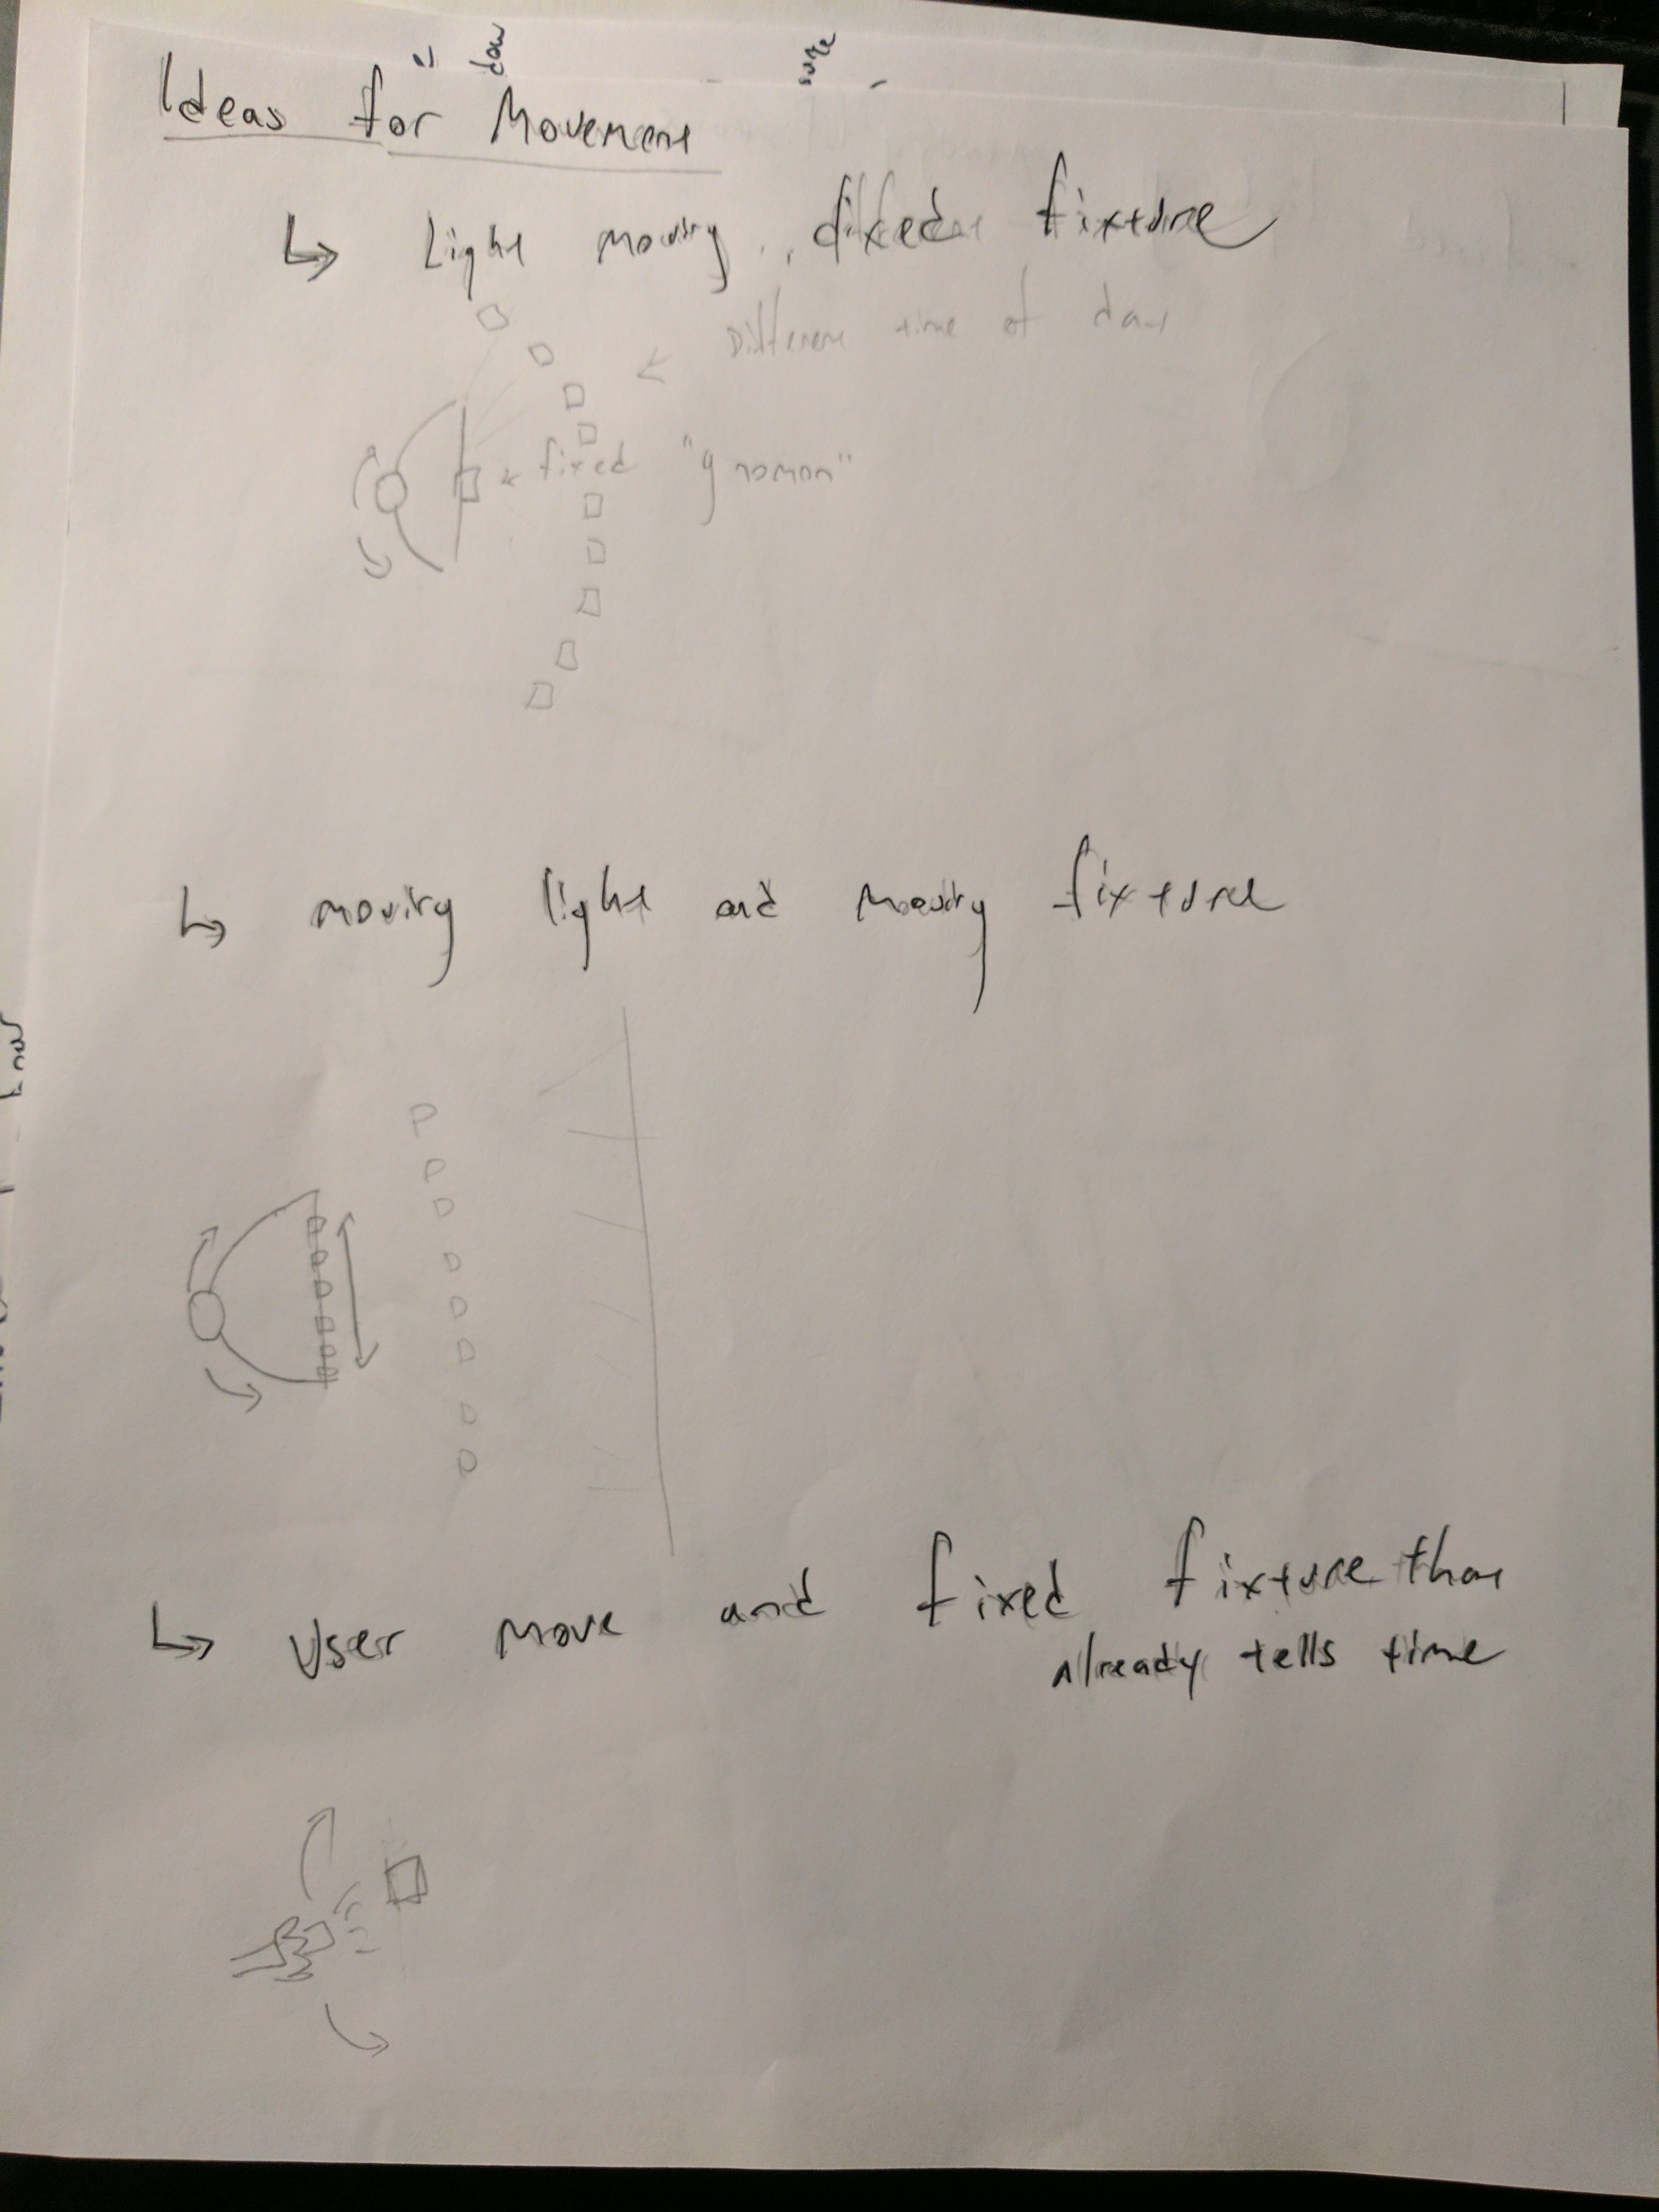 Ideas for Movement
↳ Light moving, fixed fixture
← Different time of day
← fixed "gnomon"
↳ moving light and moving fixture
↳ User move and fixed fixture that
already tells time